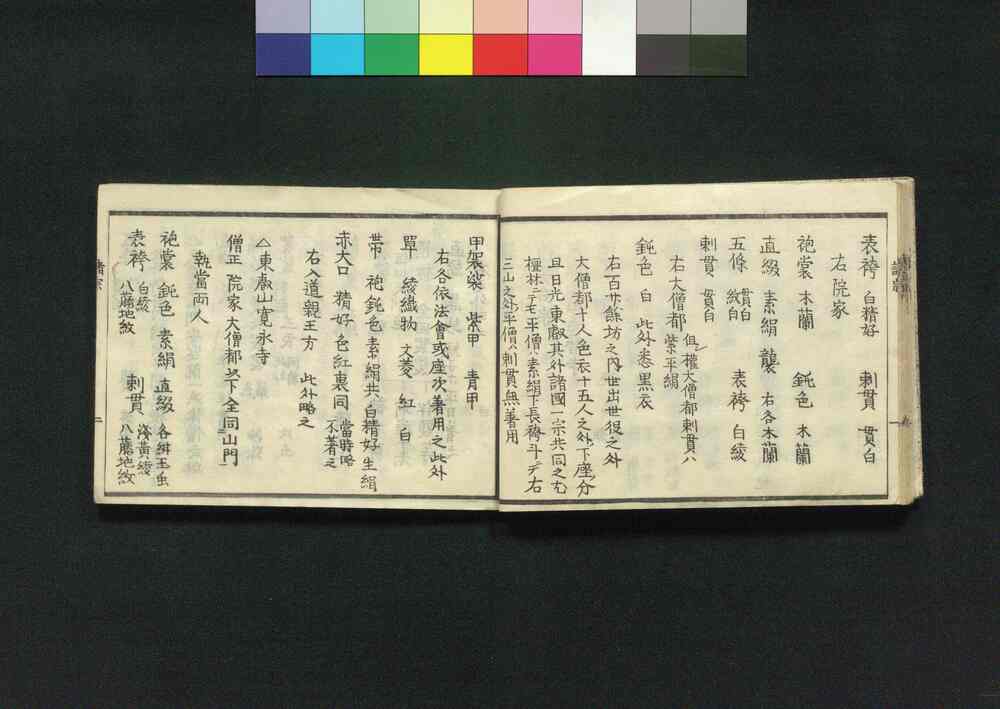 表袴 白精好 刺貫 貫白
右院家
袍裳 木蘭 鈍色 木蘭
直綴 素絹 襲 右各木蘭
五條 貫白 紋白 表袴 白綾
刺貫 貫白
右大僧都 但權大僧都刺貫ハ 紫平絹
鈍色 白 此外悉黒衣
右百廿餘坊之内世出世役之外
大僧都十人色衣十五人之外下座分
且日光東叡其外諸國一宗共同之尤
檀林ニテモ平僧ハ素絹下長袴斗デ右
三山之外平僧ハ刺貫無著用
甲袈裟 紫甲 青甲
右各依法會或座次著用之此外
單 綾織物 文菱 紅 白
帯 袍鈍色素絹共ニ白精好生絹
赤大口 精好色紅裏同 當時略 不著之
右入道親王方 此外略之
△東叡山寛永寺
僧正 院家大僧都以下全同山門
執當両人
袍裳 鈍色 素絹 直綴 各紺玉虫
表袴 白綾 八藤地紋 刺貫 淺黄綾 八藤地紋
諸宗
二